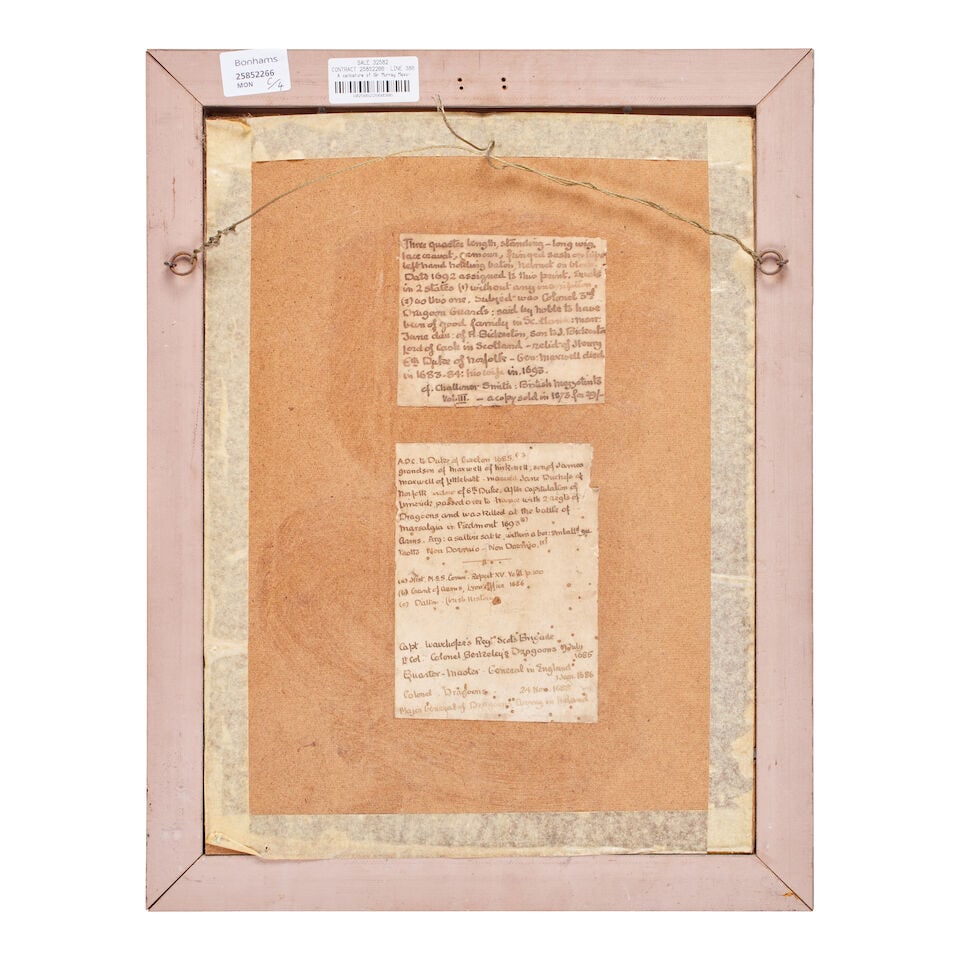 Bonhams
25852266
MON C/4
SALE 32582
CONTRACT 25852266 LINE 388
A caricature of Sir Murray
Three quarter length, standing - long wig,
lace cravat, armour, fringed sash
left hand holding baton, helmet on
Date 1692 assigned to this print. Exists
in 2 states (1) without any inscription
(2) as this one. Subject was Colonel 3rd
Dragoon Guards: said by Noble to have
been of good family in Scotland: marr:
Jane dau: of R. Bickerton, son to J. Bickerton
lord of Cash in Scotland - relict of Henry
6th Duke of Norfolk - Gen: Maxwell died
in 1683-84: his wife in 1693.
cf. Challoner Smith: British Mezzotints
Vol: III. - a copy sold in 1873 for 29/-
A.D.C. to Duke of 1685.
grandson of Maxwell of Kirkwell, son of James
Maxwell of Littlebart - married Jane Duchess of
Norfolk widow of 6th Duke. After capitulation of
Limerick passed over to France with 2 Regts of
Dragoons and was killed at the battle of
Marsalgia in Piedmont 1693
Arms. Arg: a saltire sable, within a bor:
Motto Non Dormio - Non Dormio.
(a) Hist. M.S.S. Comm. Report XV. p.100
(b) Grant of Arms, Lyon Office 1686
(c) Dalton
Capt Wauchope's Regt Scots Brigade
Lt Col. Colonel Berkeley's Dragoons July
1685
Quarter-Master-General in England
1 Jan. 1686
Colonel Dragoons 24 Nov. 1688
Major General of Dragoons Army in Ireland